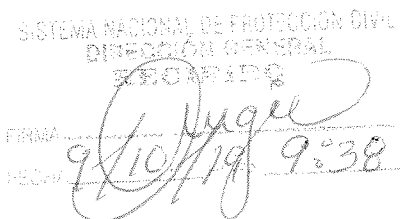 SISTEMA NACIONAL DE PROTECCIÓN CIVIL
DIRECCIÓN GENERAL
RECIBIDO
FIRMA
FECHA 9/10/19 9:38